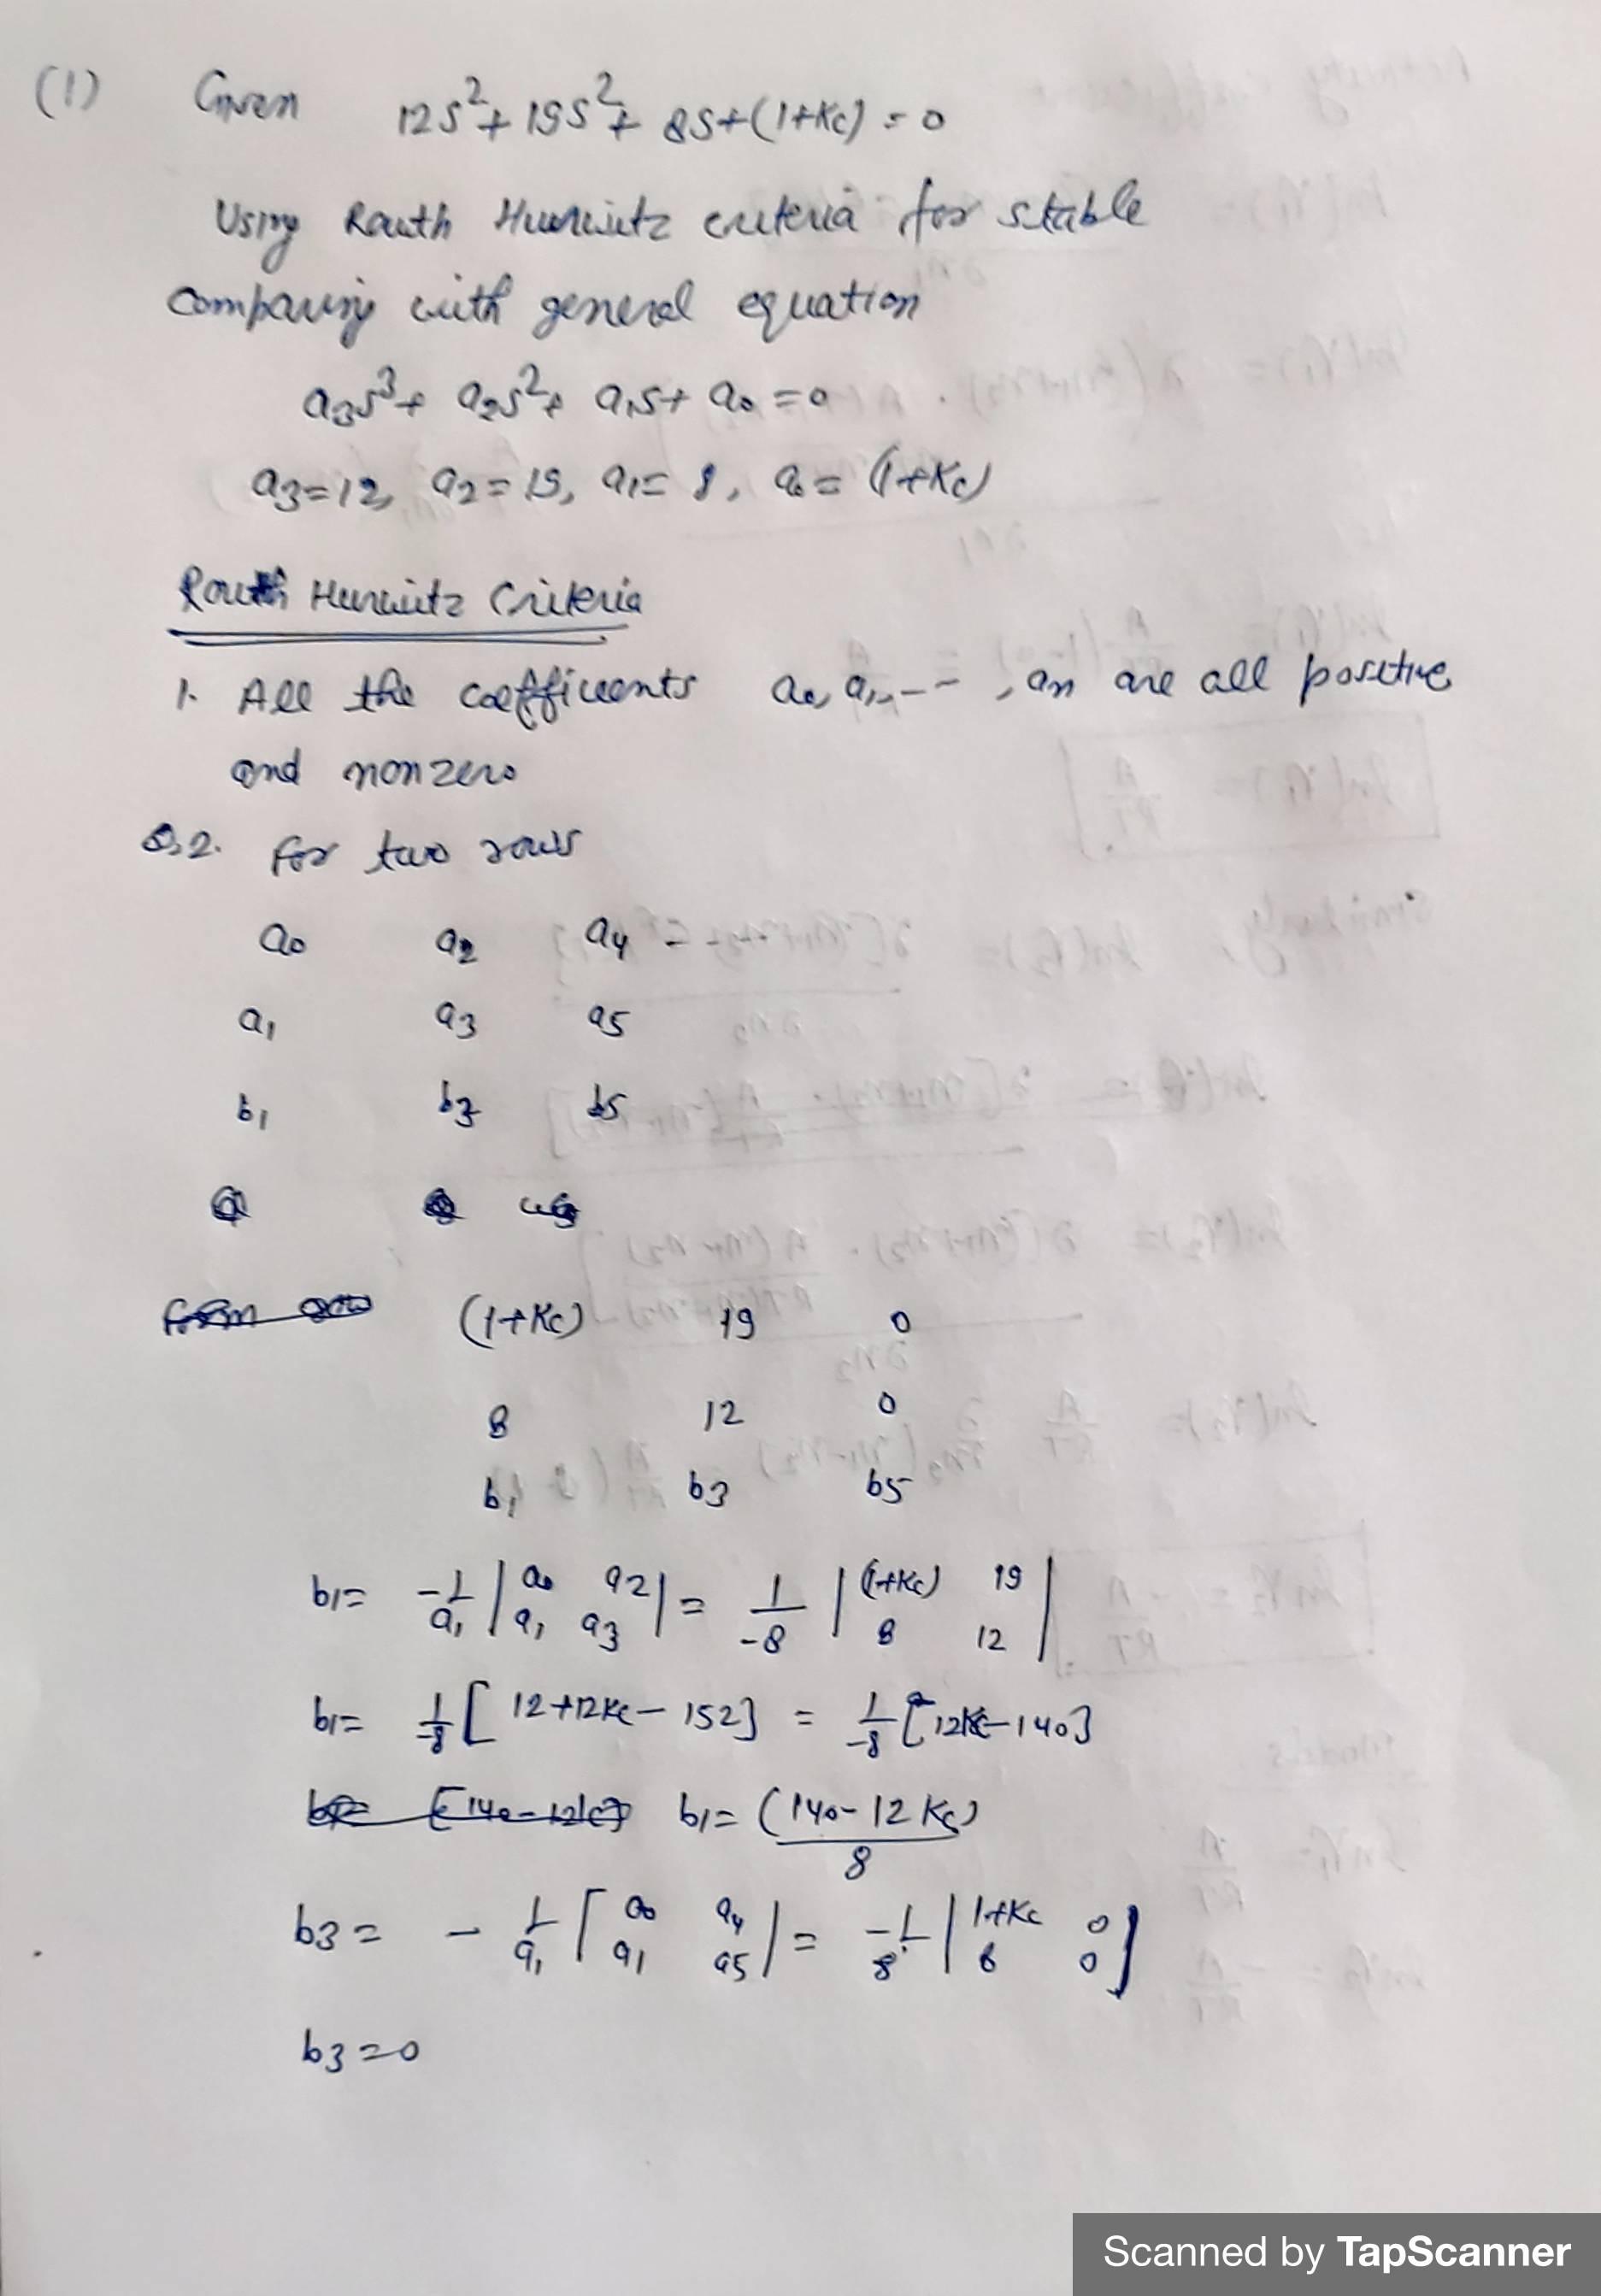 (1) Given 12s² + 19s² + 8s+(1+Kc) = 0
Using Routh Hurwitz criteria for stable
Comparing with general equation
a₃s³+ a₂s²+ a₁s+ a₀ = 0
a₃=12, a₂=19, a₁= 8, a₀ = (1+Kc)
Routh Hurwitz Criteria
1. All the coefficients a₀, a₁, - - -, an are all positive
and nonzero
2. for two rows
a₀ a₂ a₄
a₁ a₃ a₅
b₁ b₃ b₅
(1+Kc) 19 0
8 12 0
b₁ b₃ b₅
b₁= -1/a₁ | a₀ a₂ ; a₁ a₃ | = 1/-8 | (1+Kc) 19 ; 8 12 |
b₁= 1/-8 [ 12+12Kc - 152] = 1/-8 [12Kc-140]
b₁= (140-12Kc)/8
b₃ = - 1/a₁ [ a₀ a₄ ; a₁ a₅ | = -1/8 | 1+Kc 0 ; 8 0 ]
b₃=0
Scanned by TapScanner